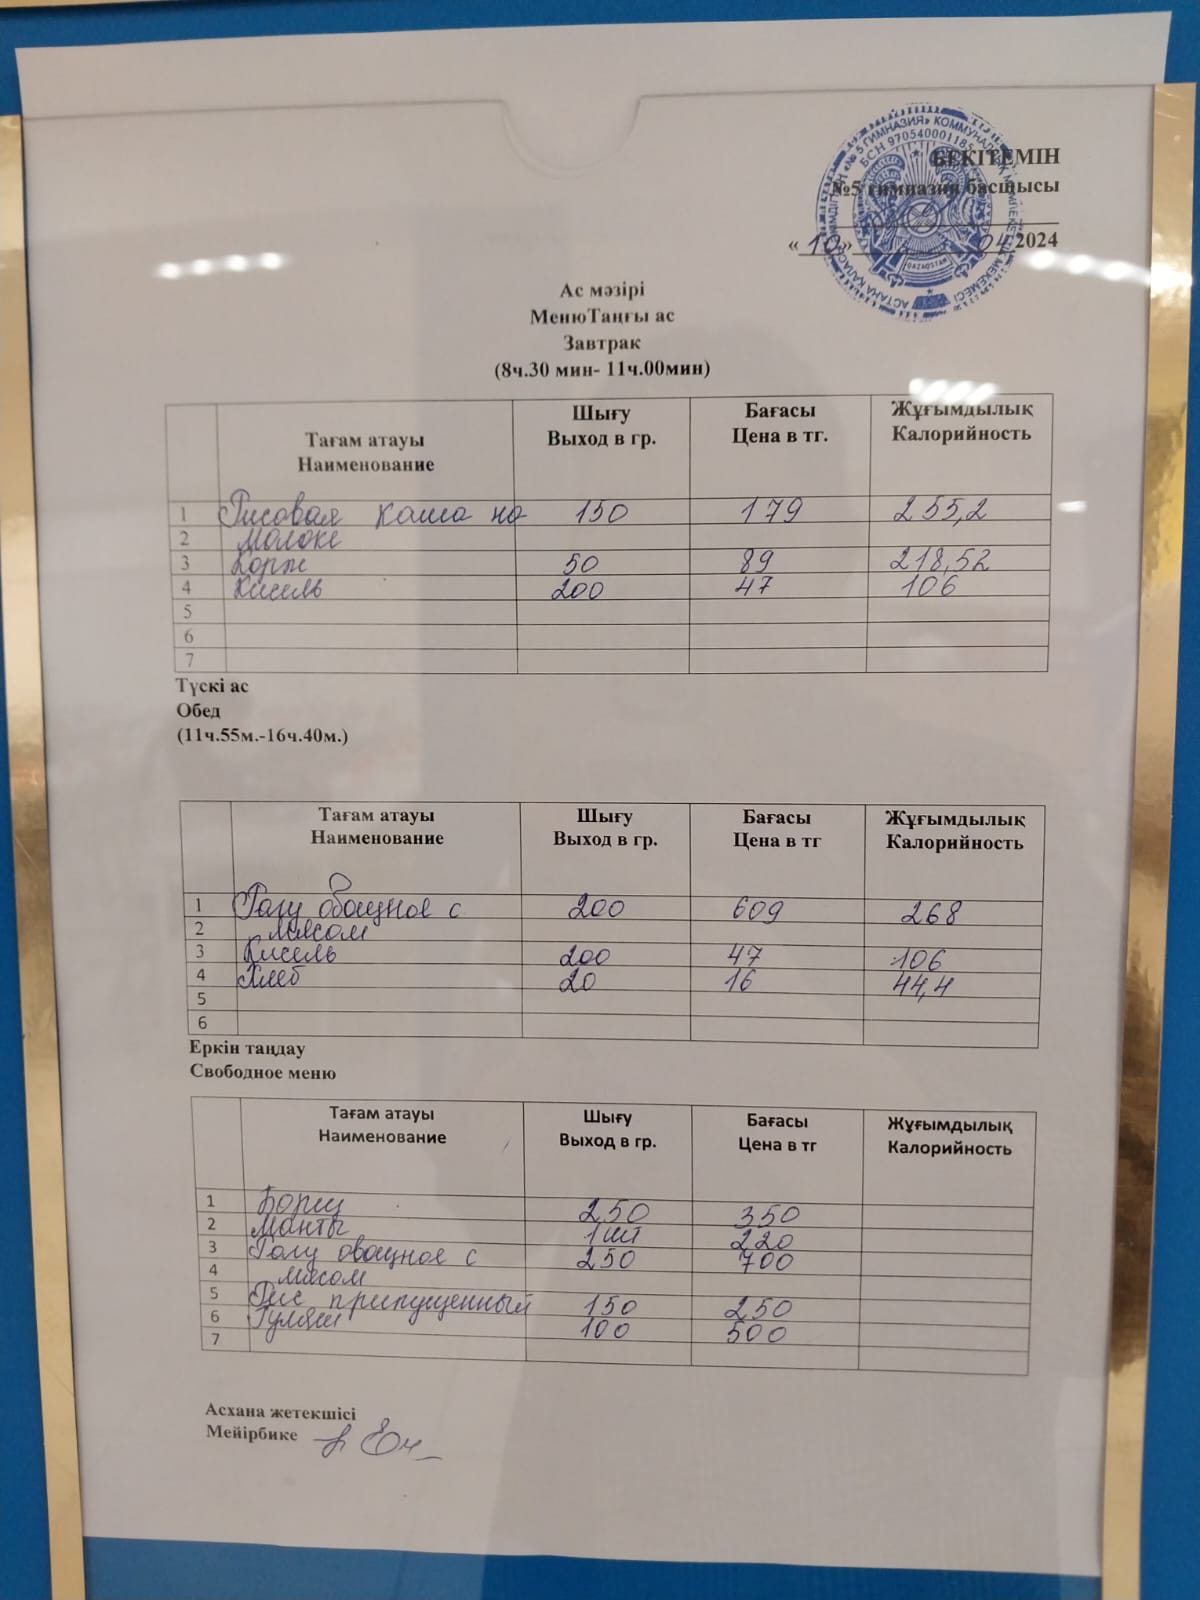 БЕКІТЕМІН
№5 гимназия басшысы
«10» 04 2024
Ас мәзірі
МенюТаңғы ас
Завтрак
(8ч.30 мин- 11ч.00мин)
Тағам атауы Наименование Шығу Выход в гр. Бағасы Цена в тг. Жұғымдылық Калорийность
1 Рисовая каша на 150 179 255,2
2 молоке
3 Корж 50 89 218,52
4 Кисель 200 47 106
5
6
7
Түскі ас
Обед
(11ч.55м.-16ч.40м.)
Тағам атауы Наименование Шығу Выход в гр. Бағасы Цена в тг Жұғымдылық Калорийность
1 Рагу овощное с 200 609 268
2 мясом
3 Кисель 200 47 106
4 Хлеб 20 16 44,4
5
6
Еркін таңдау
Свободное меню
Тағам атауы Наименование Шығу Выход в гр. Бағасы Цена в тг Жұғымдылық Калорийность
1 Борщ 250 350
2 Манты 1шт 220
3 Рагу овощное с 250 700
4 мясом
5 Рис припущенный 150 250
6 Гуляш 100 500
7
Асхана жетекшісі
Мейірбике